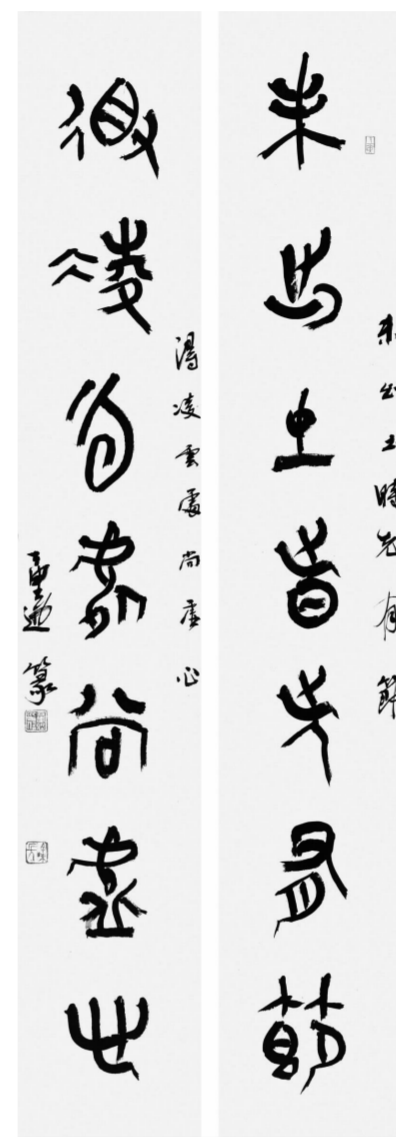 未出土時先有節
未出土時先有節
得凌雲處尚虛心
得凌雲處尚虛心
篆